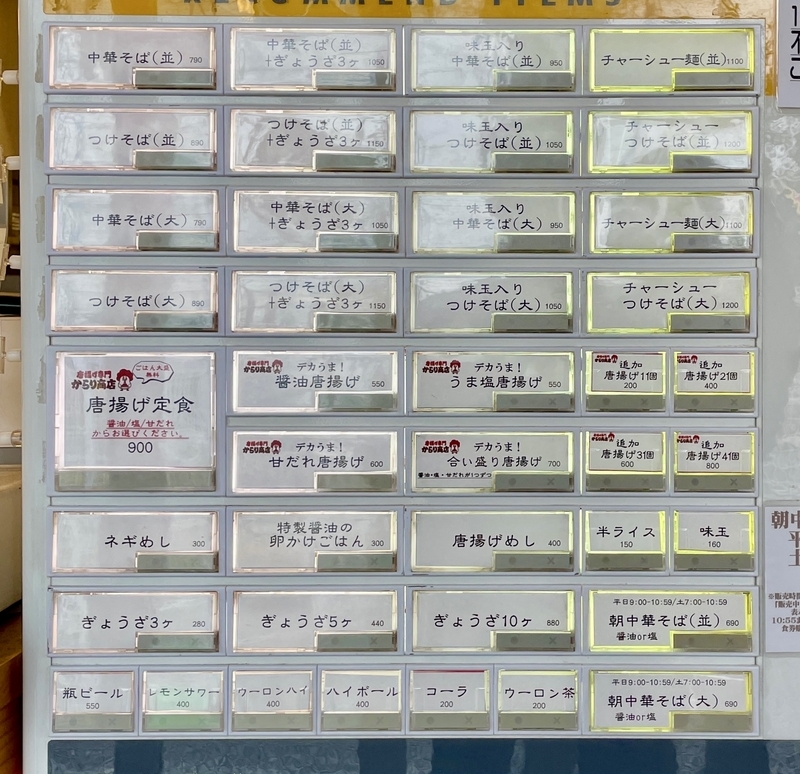 RECOMMEND ITEMS
中華そば(並) 790
中華そば(並)
+ぎょうざ3ヶ 1050
味玉入り
中華そば(並) 950
チャーシュー麺(並) 1100
つけそば(並) 890
つけそば(並)
+ぎょうざ3ヶ 1150
味玉入り
つけそば(並) 1050
チャーシュー
つけそば(並) 1200
中華そば(大) 790
中華そば(大)
+ぎょうざ3ヶ 1050
味玉入り
中華そば(大) 950
チャーシュー麺(大) 1100
つけそば(大) 890
つけそば(大)
+ぎょうざ3ヶ 1150
味玉入り
つけそば(大) 1050
チャーシュー
つけそば(大) 1200
唐揚げ専門
からり商店
ごはん大盛
無料
唐揚げ定食
醤油/塩/甘だれ
からお選びください。
900
唐揚げ専門
からり商店
デカうま!
醤油唐揚げ 550
唐揚げ専門
からり商店
デカうま!
うま塩唐揚げ 550
追加
唐揚げ1個
200
追加
唐揚げ2個
400
唐揚げ専門
からり商店
デカうま!
甘だれ唐揚げ 600
唐揚げ専門
からり商店
デカうま!
合い盛り唐揚げ 700
醤油・塩・甘だれが1つずつ
追加
唐揚げ3個
600
追加
唐揚げ4個
800
ネギめし 300
特製醤油の
卵かけごはん 300
唐揚げめし 400
半ライス
150
味玉
160
ぎょうざ3ヶ 280
ぎょうざ5ヶ 440
ぎょうざ10ヶ 880
平日9:00-10:59/土7:00-10:59
朝中華そば(並) 690
醤油or塩
瓶ビール
550
レモンサワー
400
ウーロンハイ
400
ハイボール
400
コーラ
200
ウーロン茶
200
平日9:00-10:59/土7:00-10:59
朝中華そば(大) 690
醤油or塩
朝中
平
土
※販売時
『販売中
表
10:55ま
食券